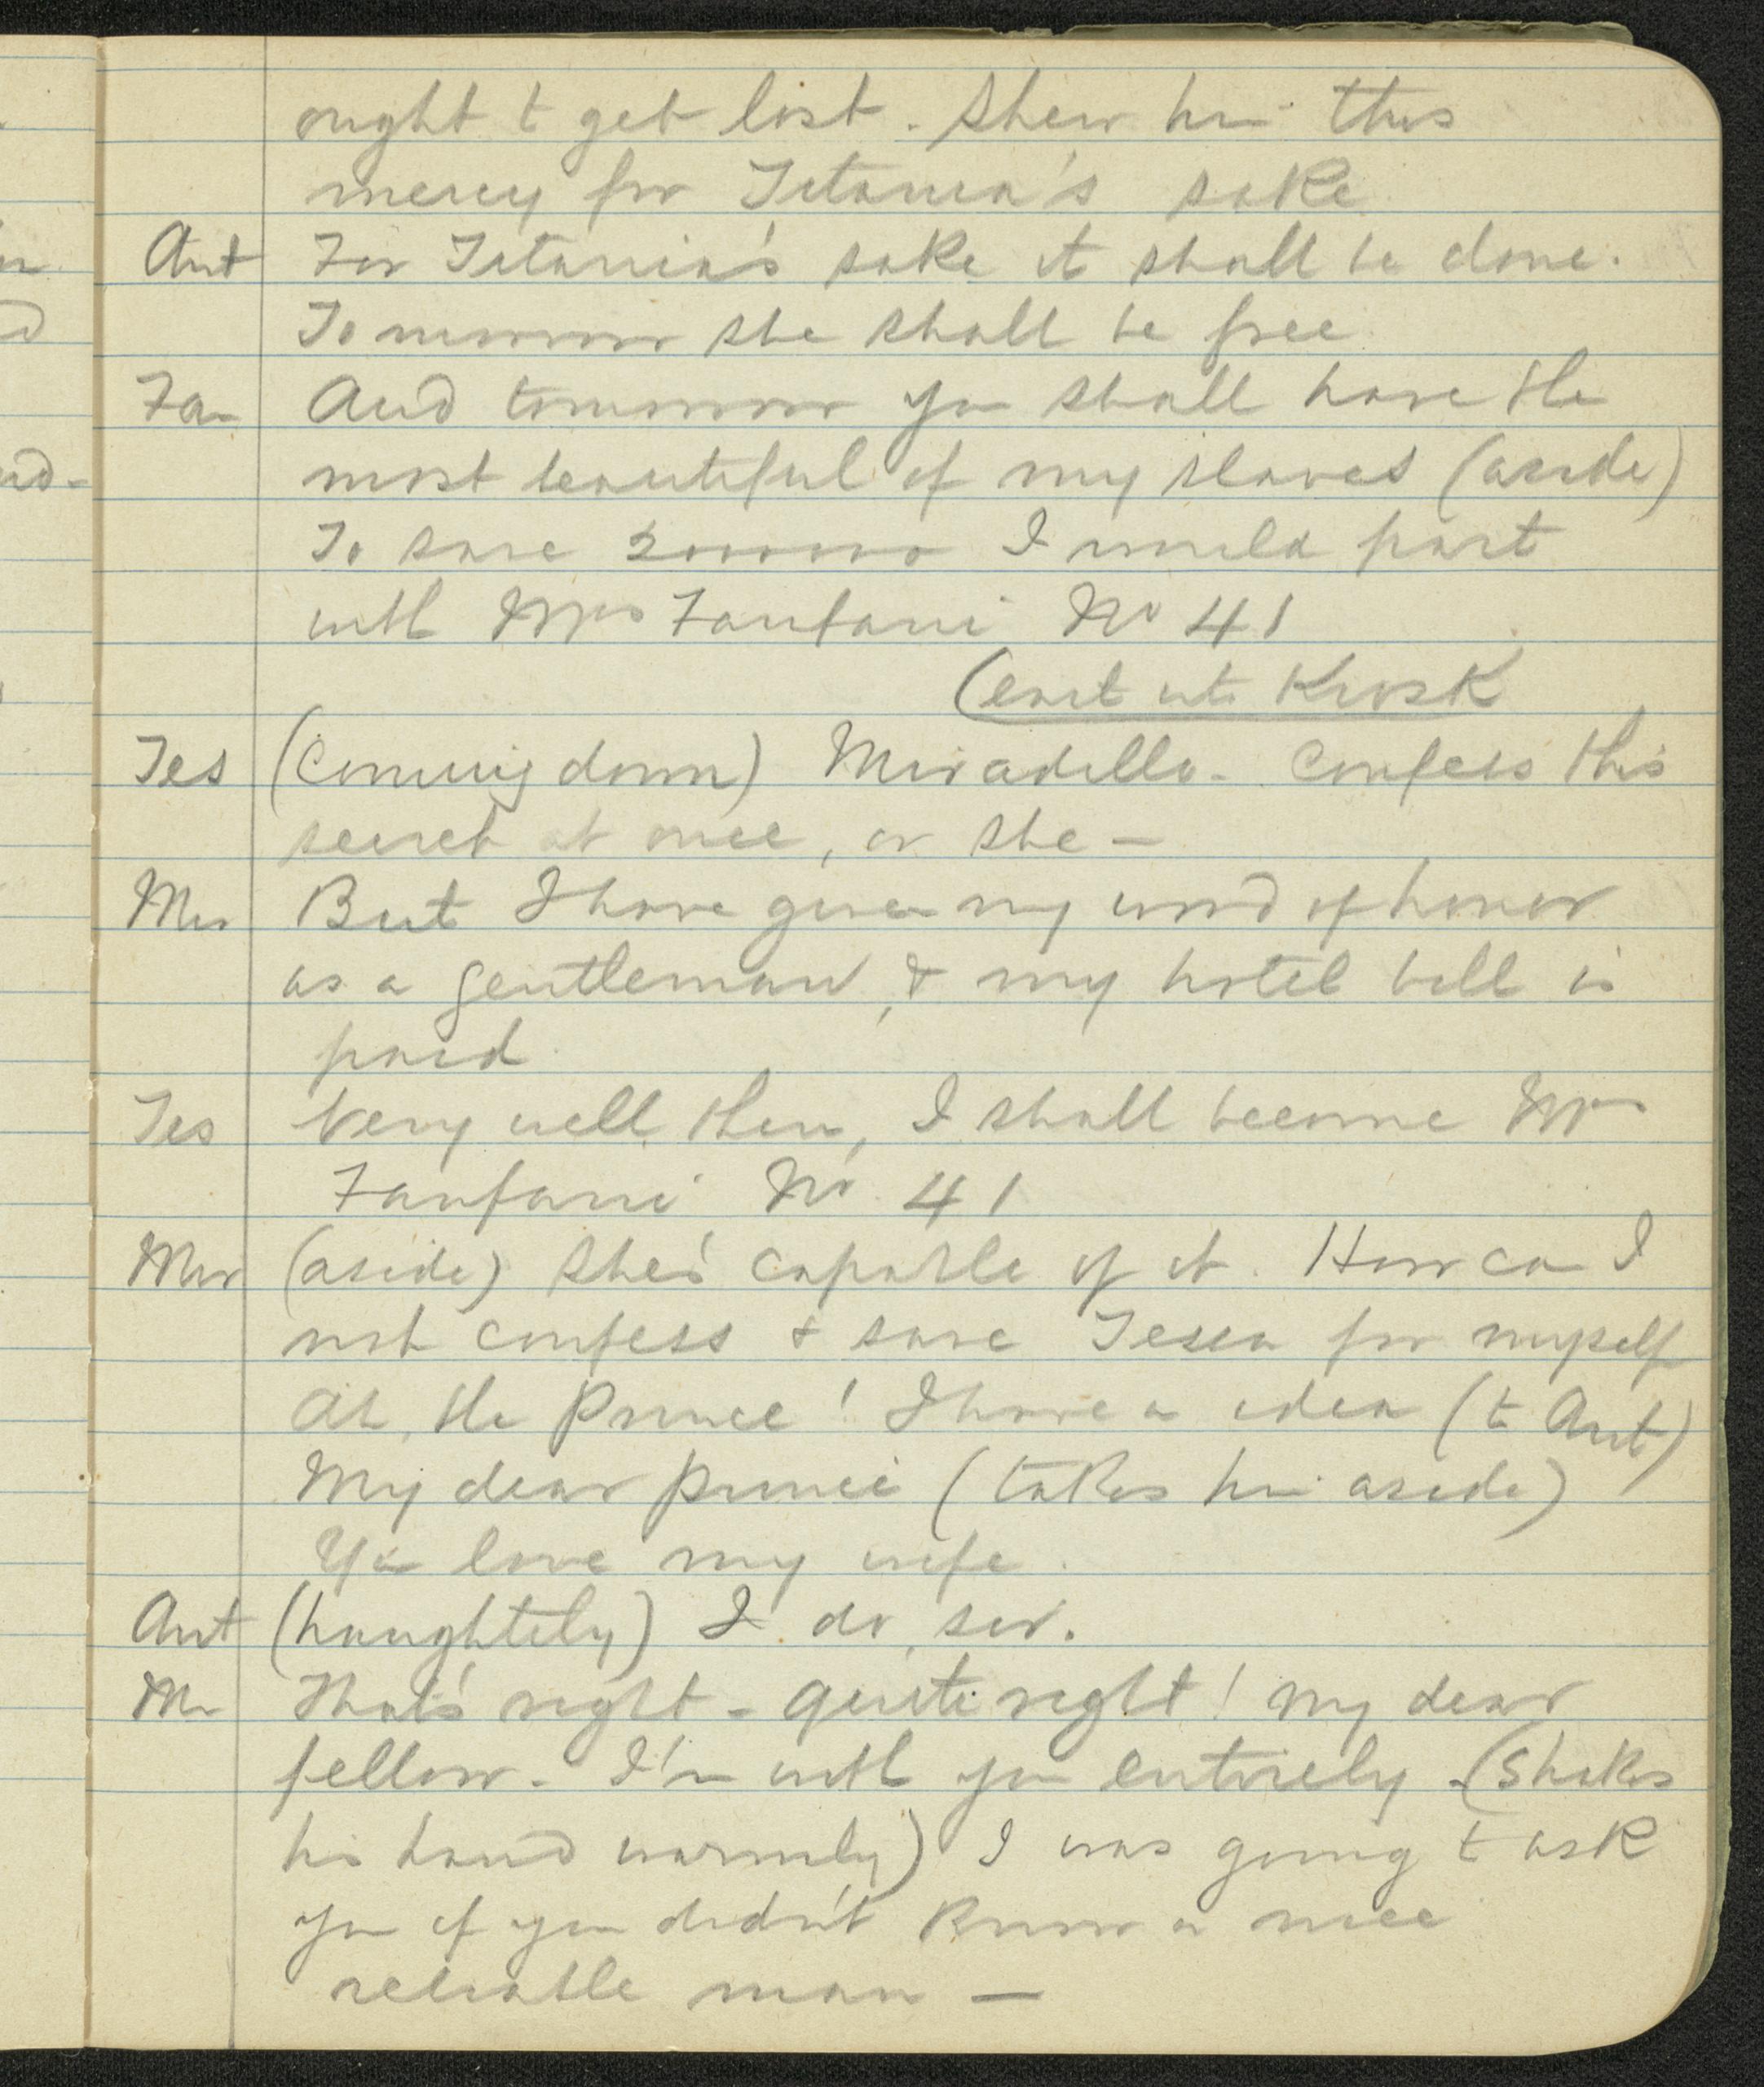 ought t get lost. Shew him this
mercy for Titania's sake
Ant For Titania's sake it shall be done.
Tomorrow she shall be free
Fan And tomorrow you shall have the
most beautiful of my slaves (aside)
To save 2000000 I would part
with Mrs Fanfani No 41
(exit into Kiosk
Tes (Coming down) Miradillo. Confess this
secret at once, or she —
Mir But I have given my word of honor
as a gentleman, & my hotel bill is
paid
Tes Very well then, I shall become Mrs
Fanfani No 41
Mir (aside) She's capable of it. How can I
not confess & save Tessa for myself
Ah, the Prince! I have a idea (to Ant)
My dear Prince (takes him aside)
You love my wife.
Ant (haughtily) I do, sir.
Mir That's right - quite right! My dear
fellow. I'm with you entirely - (Shakes
his hand warmly) I was going t ask
you if you didn't know a nice
reliable man —